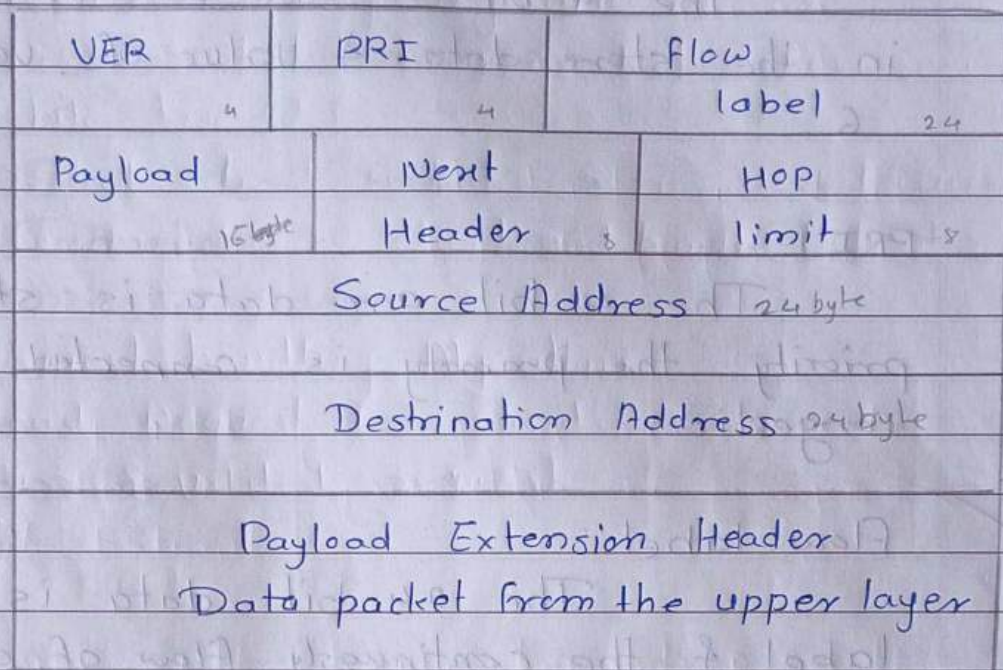 VER PRI flow
4 4 label 24
Payload Next HOP
Header 8 limit 8
Source Address 24 byte
Destrination Address 24 byte
Payload Extension Header
Data packet from the upper layer